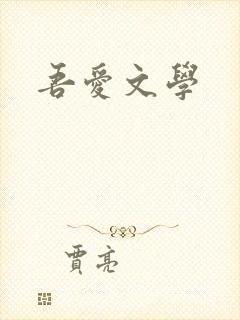 吾愛文學
賈亮